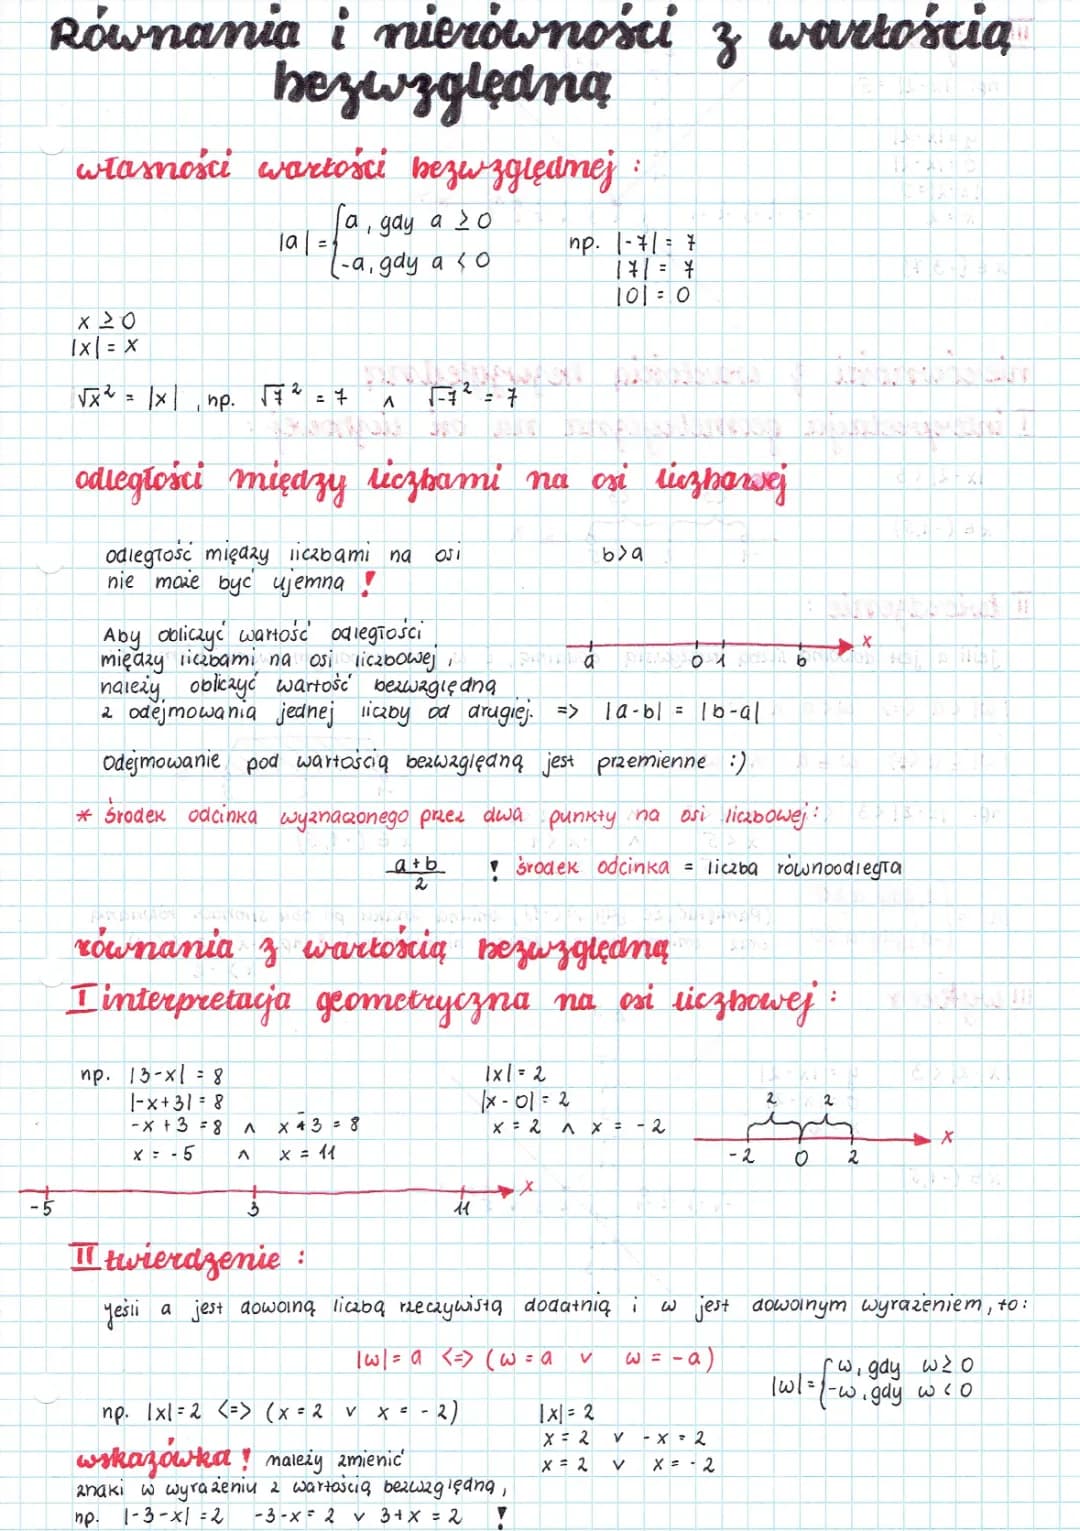 Równania i nierówności z wartością
bezwzględną
własności wartości bezwzględnej :
|a| = { a, gdy a ≥ 0
-a, gdy a < 0
np. |-7| = 7
|7| = 7
|0| = 0
x ≥ 0
|x| = x
√x² = |x| , np. √7² = 7 ∧ √-7² = 7
odległości między liczbami na osi liczbowej
odległość między liczbami na osi
nie może być ujemna !
b>a
Aby obliczyć wartość odległości
między liczbami na osi liczbowej,
należy obliczyć wartość bezwzględną
z odejmowania jednej liczby od drugiej. => |a-b| = |b-a|
a 0 1 b x
Odejmowanie pod wartością bezwzględną jest przemienne :)
* środek odcinka wyznaczonego przez dwa punkty na osi liczbowej:
a+b
2
! środek odcinka = liczba równoodległa
równania z wartością bezwzględną
I interpretacja geometryczna na osi liczbowej :
np. |3-x| = 8
|-x+3| = 8
-x+3 = 8 ∧ x-3 = 8
x = -5 ∧ x = 11
|x| = 2
|x-0| = 2
x = 2 ∧ x = -2
2 2
-2 0 2 x
-5 3 11 x
II twierdzenie :
Jeśli a jest dowolną liczbą rzeczywistą dodatnią i w jest dowolnym wyrażeniem, to:
|w| = a <=> (w = a ∨ w = -a)
|w| = { w, gdy w ≥ 0
-w, gdy w < 0
np. |x| = 2 <=> (x = 2 ∨ x = -2)
|x| = 2
x = 2 ∨ -x = 2
x = 2 ∨ x = -2
wskazówka ! należy zmienić
znaki w wyrażeniu z wartością bezwzględną,
np. |-3-x| = 2 -3-x = 2 ∨ 3+x = 2 !